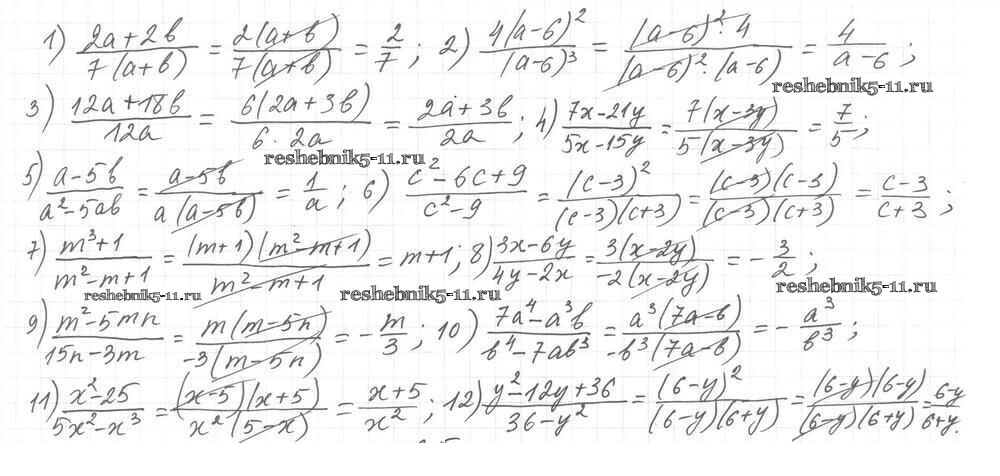 1) (2a+2b)/(7(a+b)) = (2(a+b))/(7(a+b)) = 2/7; 2) (4(a-6)²)/((a-6)³) = ((a-6)²·4)/((a-6)²·(a-6)) = 4/(a-6);
reshebnik5-11.ru
3) (12a+18b)/(12a) = (6(2a+3b))/(6·2a) = (2a+3b)/(2a); 4) (7x-21y)/(5x-15y) = (7(x-3y))/(5(x-3y)) = 7/5;
reshebnik5-11.ru
5) (a-5b)/(a²-5ab) = (a-5b)/(a(a-5b)) = 1/a; 6) (c²-6c+9)/(c²-9) = ((c-3)²)/((c-3)(c+3)) = ((c-3)(c-3))/((c-3)(c+3)) = (c-3)/(c+3);
7) (m³+1)/(m²-m+1) = ((m+1)(m²-m+1))/(m²-m+1) = m+1; 8) (3x-6y)/(4y-2x) = (3(x-2y))/(-2(x-2y)) = -3/2;
reshebnik5-11.ru reshebnik5-11.ru reshebnik5-11.ru
9) (m²-5mn)/(15n-3m) = (m(m-5n))/(-3(m-5n)) = -m/3; 10) (7a⁴-a³b)/(b⁴-7ab³) = (a³(7a-b))/(-b³(7a-b)) = -a³/b³;
11) (x²-25)/(5x²-x³) = ((x-5)(x+5))/(x²(5-x)) = (x+5)/x²; 12) (y²-12y+36)/(36-y²) = ((6-y)²)/((6-y)(6+y)) = ((6-y)(6-y))/((6-y)(6+y)) = (6-y)/(6+y).